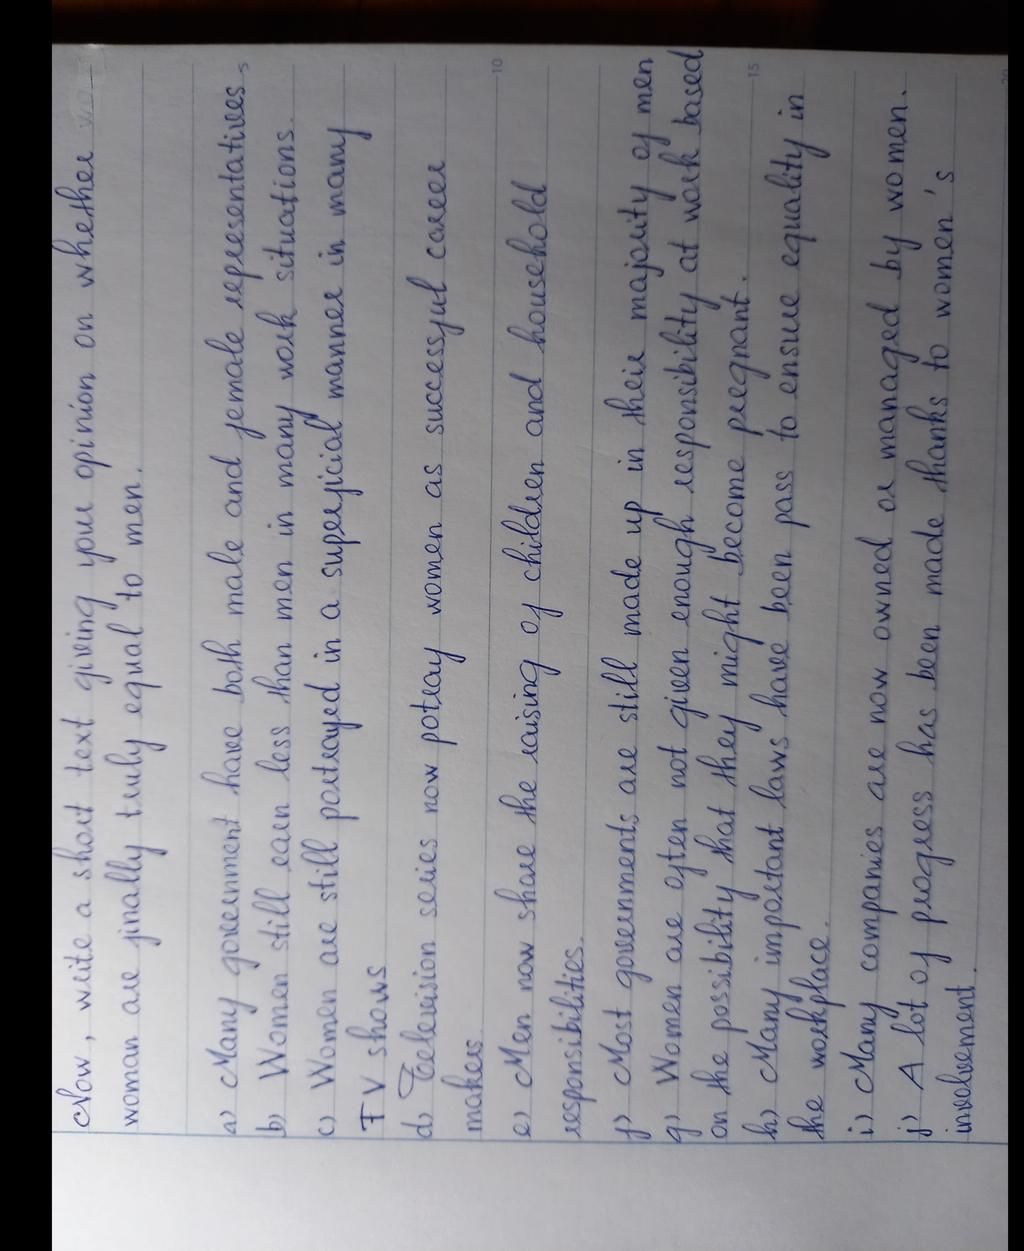 Now, write a short text giving your opinion on whether
woman are finally truly equal to men.
a) Many government have both male and female representatives.
b) Women still earn less than men in many work situations.
c) Women are still portrayed in a superficial manner in many
TV shows
d) Television series now potray women as successful career
makers.
e) Men now share the raising of children and household
responsibilities.
f) Most governments are still made up in their majority of men
g) Women are often not given enough responsibility at work based
on the possibility that they might become pregnant.
h) Many important laws have been pass to ensure equality in
the workplace.
i) Many companies are now owned or managed by women.
j) A lot of progress has been made thanks to women's
involvement.
5
10
15
20